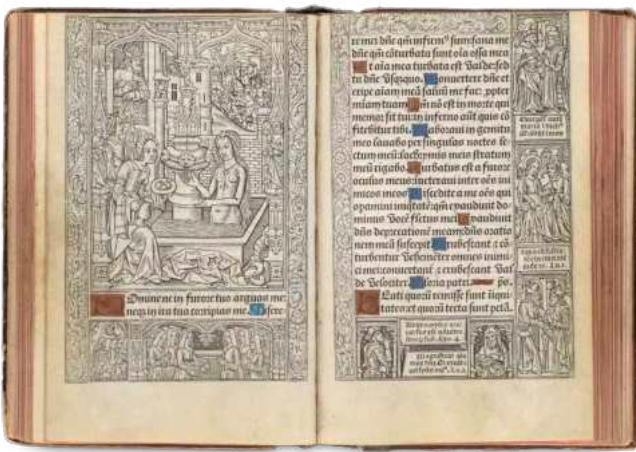 Domine ne in furore tuo arguas me:
neqʒ in ira tua corripias me. Misere-
re mei dñe qm̃ infirmꝰ sum: sana me
dñe qm̃ cõturbata sunt oĩa ossa mea
Et aĩa mea turbata est valde: sed
tu dñe vsqʒquo. Conuertere dñe et
eripe aĩam meã saluũ me fac: ꝓpter
miam̃ tuam. Qm̃ nõ est in morte qui
memor sit tui: in inferno aũt quis cõ
fitebitur tibi. Laboraui in gemitu
meo lauabo per singulas noctes le-
ctum meũ: lachrymis meis stratum
meũ rigabo. Turbatus est a furore
oculus meus: inueteraui inter oẽs ini
micos meos Discedite a me oẽs qui
operamini iniqtatẽ: qm̃ exaudiuit do-
minus vocẽ fletus mei Exaudiuit
dñs deprecationẽ meam: dñs oratio
nem meã suscepit. Erubescant ⁊ cõ
turbentur vehemẽter omnes inimi
ci mei: conuertant̃ ⁊ erubescant val
de velociter. Gloria patri. pš.
Beati quorũ remisse sunt iniqui
tates: et quorũ tecta sunt pctã.